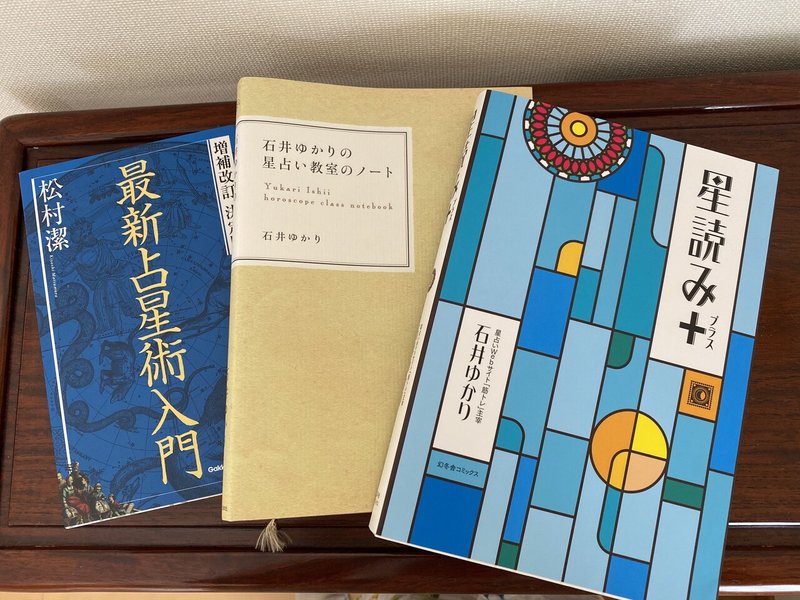 増補改訂
最新占星術入門
松村潔
石井ゆかりの
星占い教室のノート
Yukari Ishii
horoscope class notebook
石井ゆかり
星読み+
プラス
星占いWebサイト「筋トレ」主宰
石井ゆかり
幻冬舎コミックス